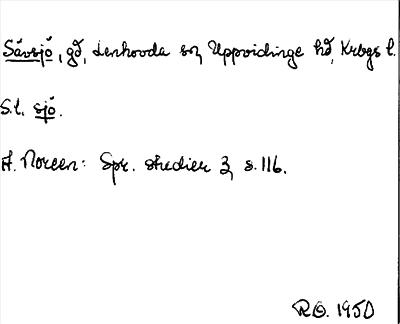 Sävsjö, gd, Lenhovda sn, Uppvidinge hd, Krbgs l.
S.l. sjö.
A. Noreen: Spr. studier 3, s. 116.
RO. 1950